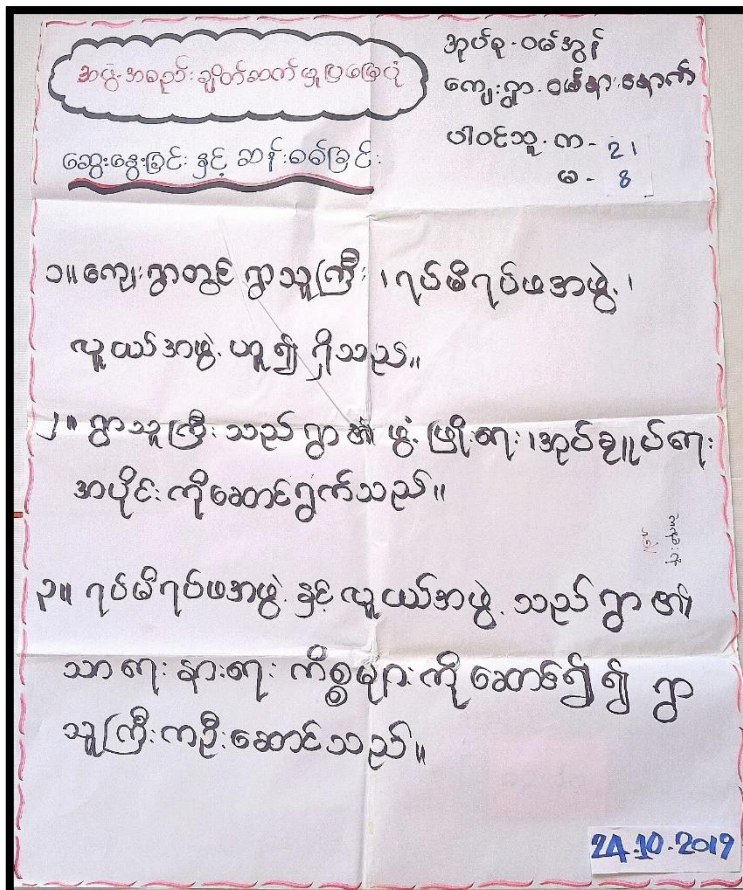 အဖွဲ့အစည်းချိတ်ဆက်မှုပြမြေပုံ
အုပ်စု-ဝမ်အွန်
ကျေးရွာ-ဝမ်နားနောက်
ပါဝင်သူ-က-21
မ-8
ဆွေးနွေးခြင်း နှင့် ဆန်းစစ်ခြင်း
၁။ ကျေးရွာတွင် ရွာသူကြီး၊ ရပ်မိရပ်ဖအဖွဲ့၊
လူငယ်အဖွဲ့ ဟူ၍ ရှိသည်။
၂။ ရွာသူကြီးသည် ရွာ၏ ဖွံ့ဖြိုးရေး၊ အုပ်ချုပ်ရေး
အပိုင်းကိုဆောင်ရွက်သည်။
၃။ ရပ်မိရပ်ဖအဖွဲ့ နှင့် လူငယ်အဖွဲ့ သည် ရွာ၏
သာရေးနာရေး ကိစ္စများကို ဆောင်၍၍ ရွာ
သူကြီးကဦးဆောင်သည်။
24.10.2019